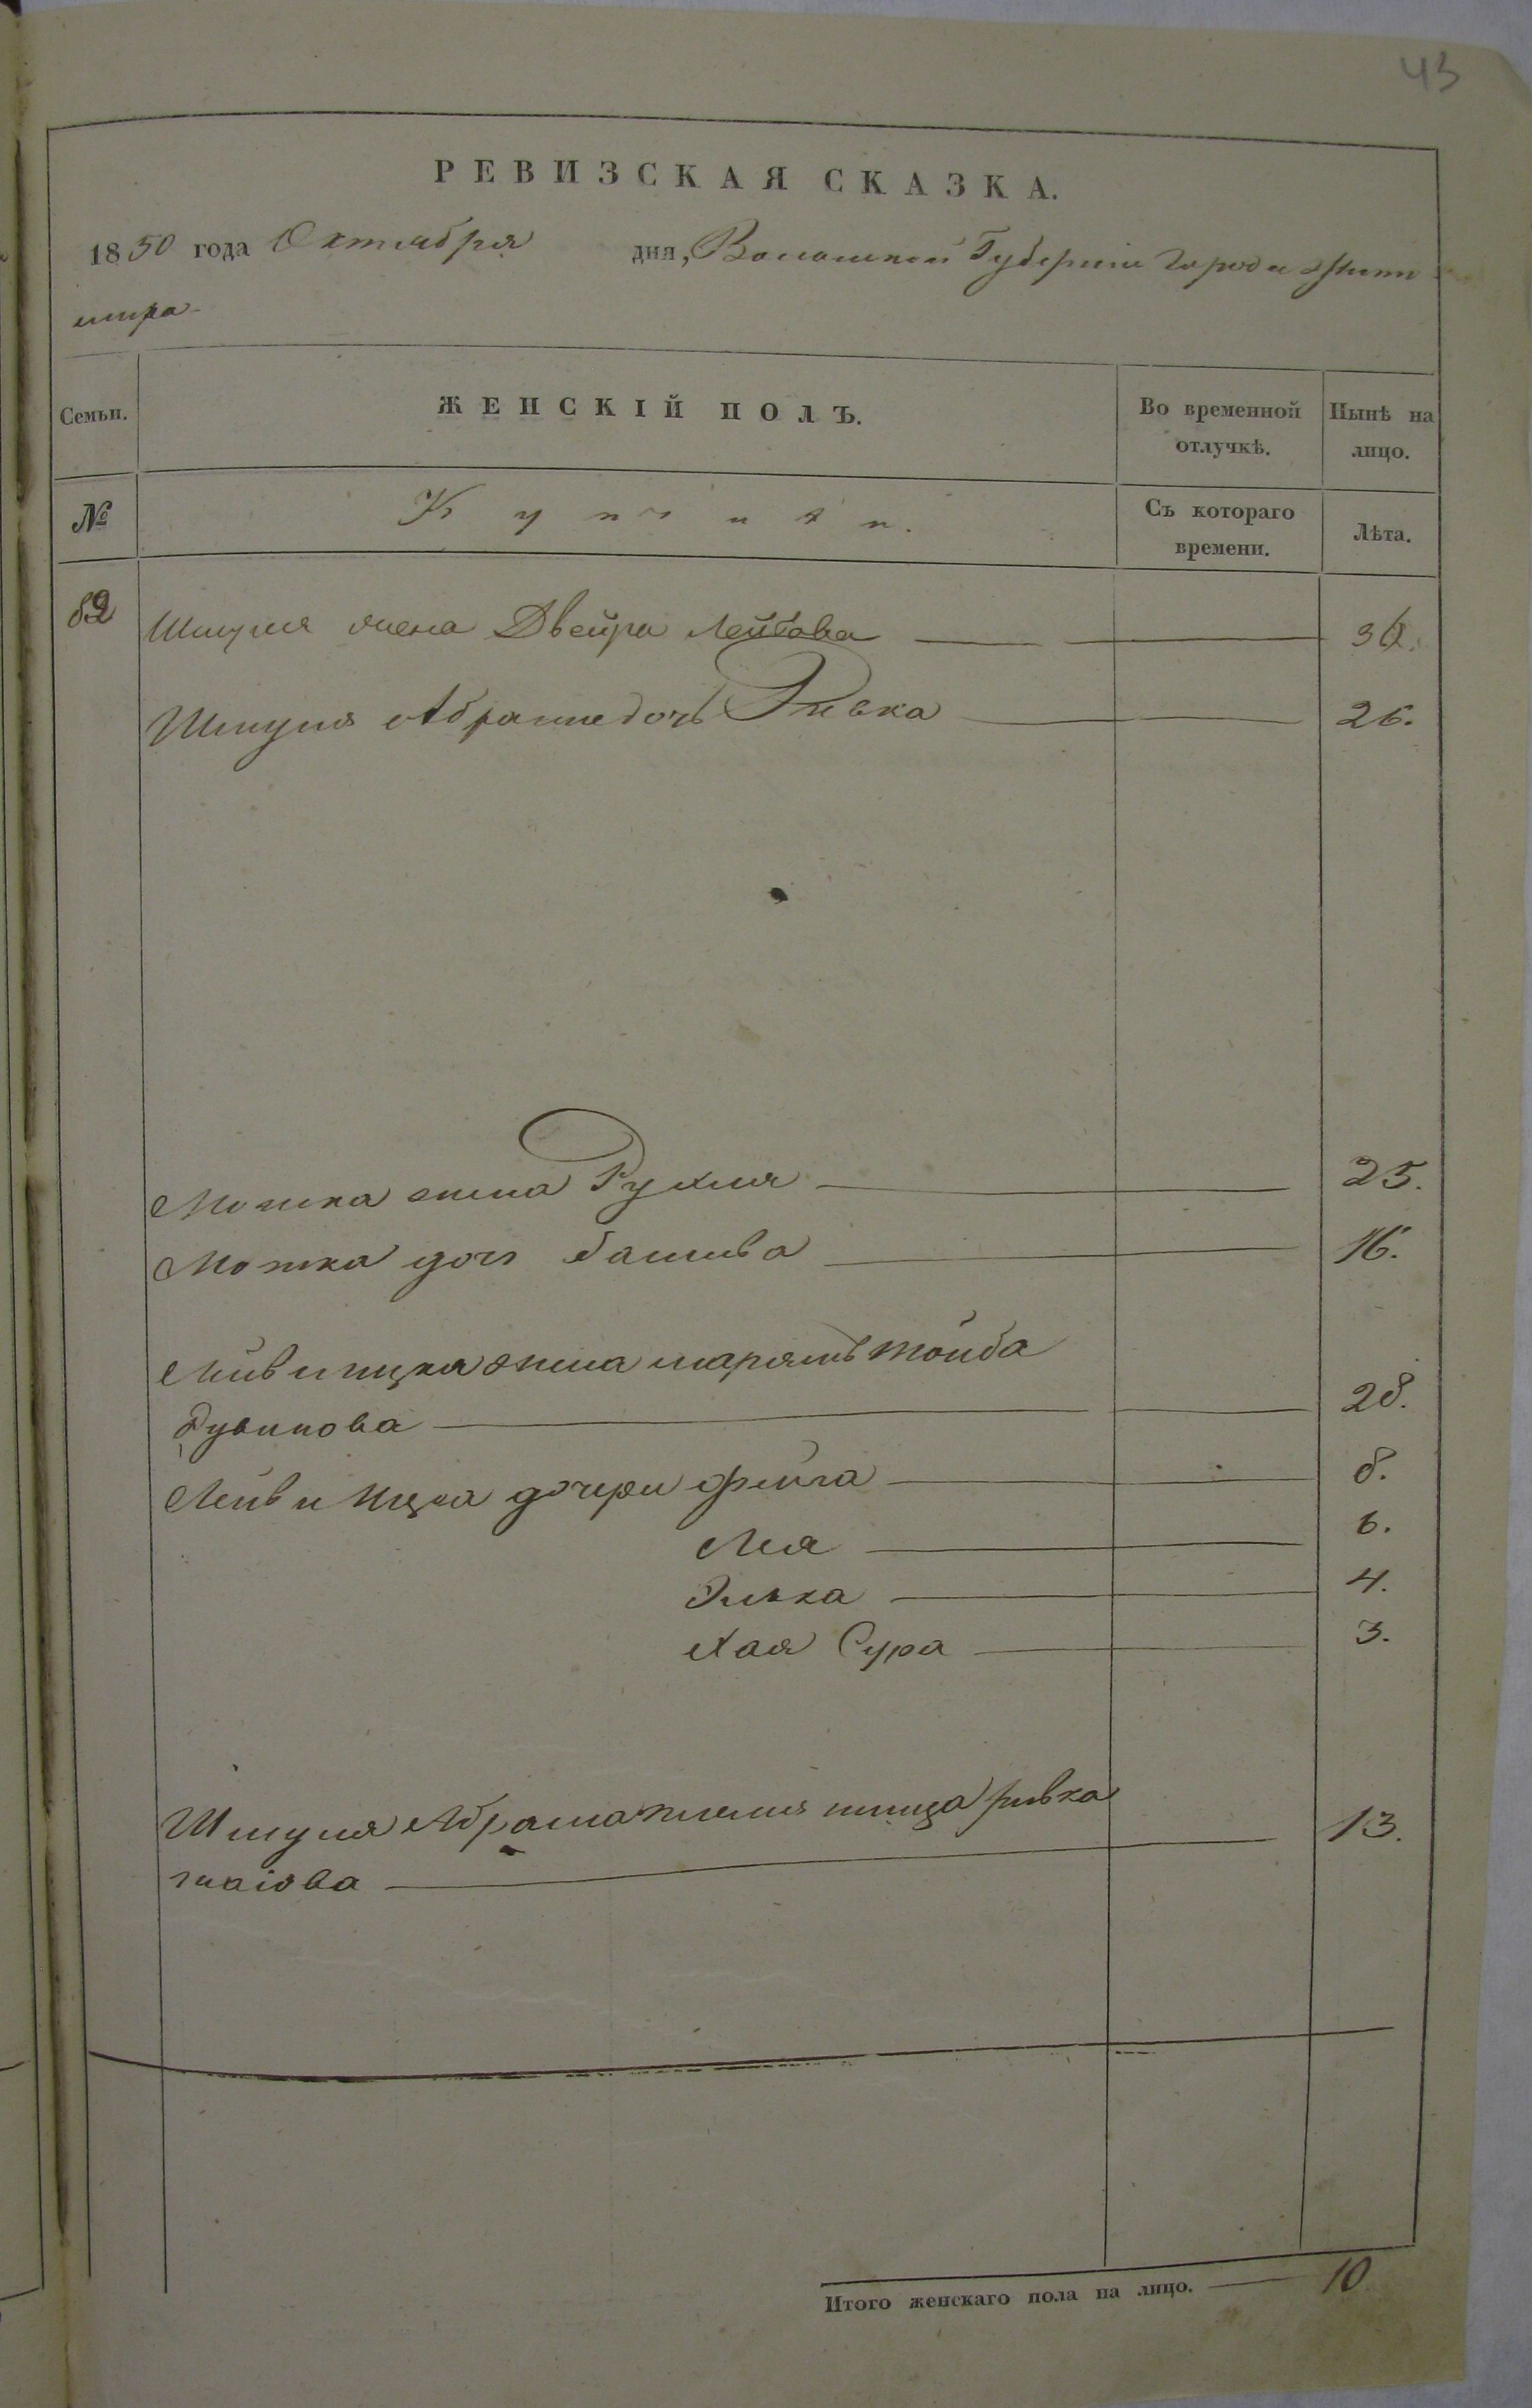 43
РЕВИЗСКАЯ СКАЗКА.
1850 года Октября дня, Волынской Губернiи города Жито
мира
Семьи. ЖЕНСКIЙ ПОЛЪ. Во временной отлучкѣ. Нынѣ на лицо.
№ Съ котораго времени. Лѣта.
82 Шмуля жена Двейра Лейбова 36.
Шмуля Абрама дочь Ривка 26.
Мошка жена Рухля 25.
Мошка дочь башива 16.
Лейб Ицка жена марямъ тойба
Рувинова 28.
Лейб Ицка дочери фейга 8.
Лея 6.
Элька 4.
Хая Сура 3.
Шмуля Абрама жена ривка 13.
Итого женскаго пола на лицо. 10